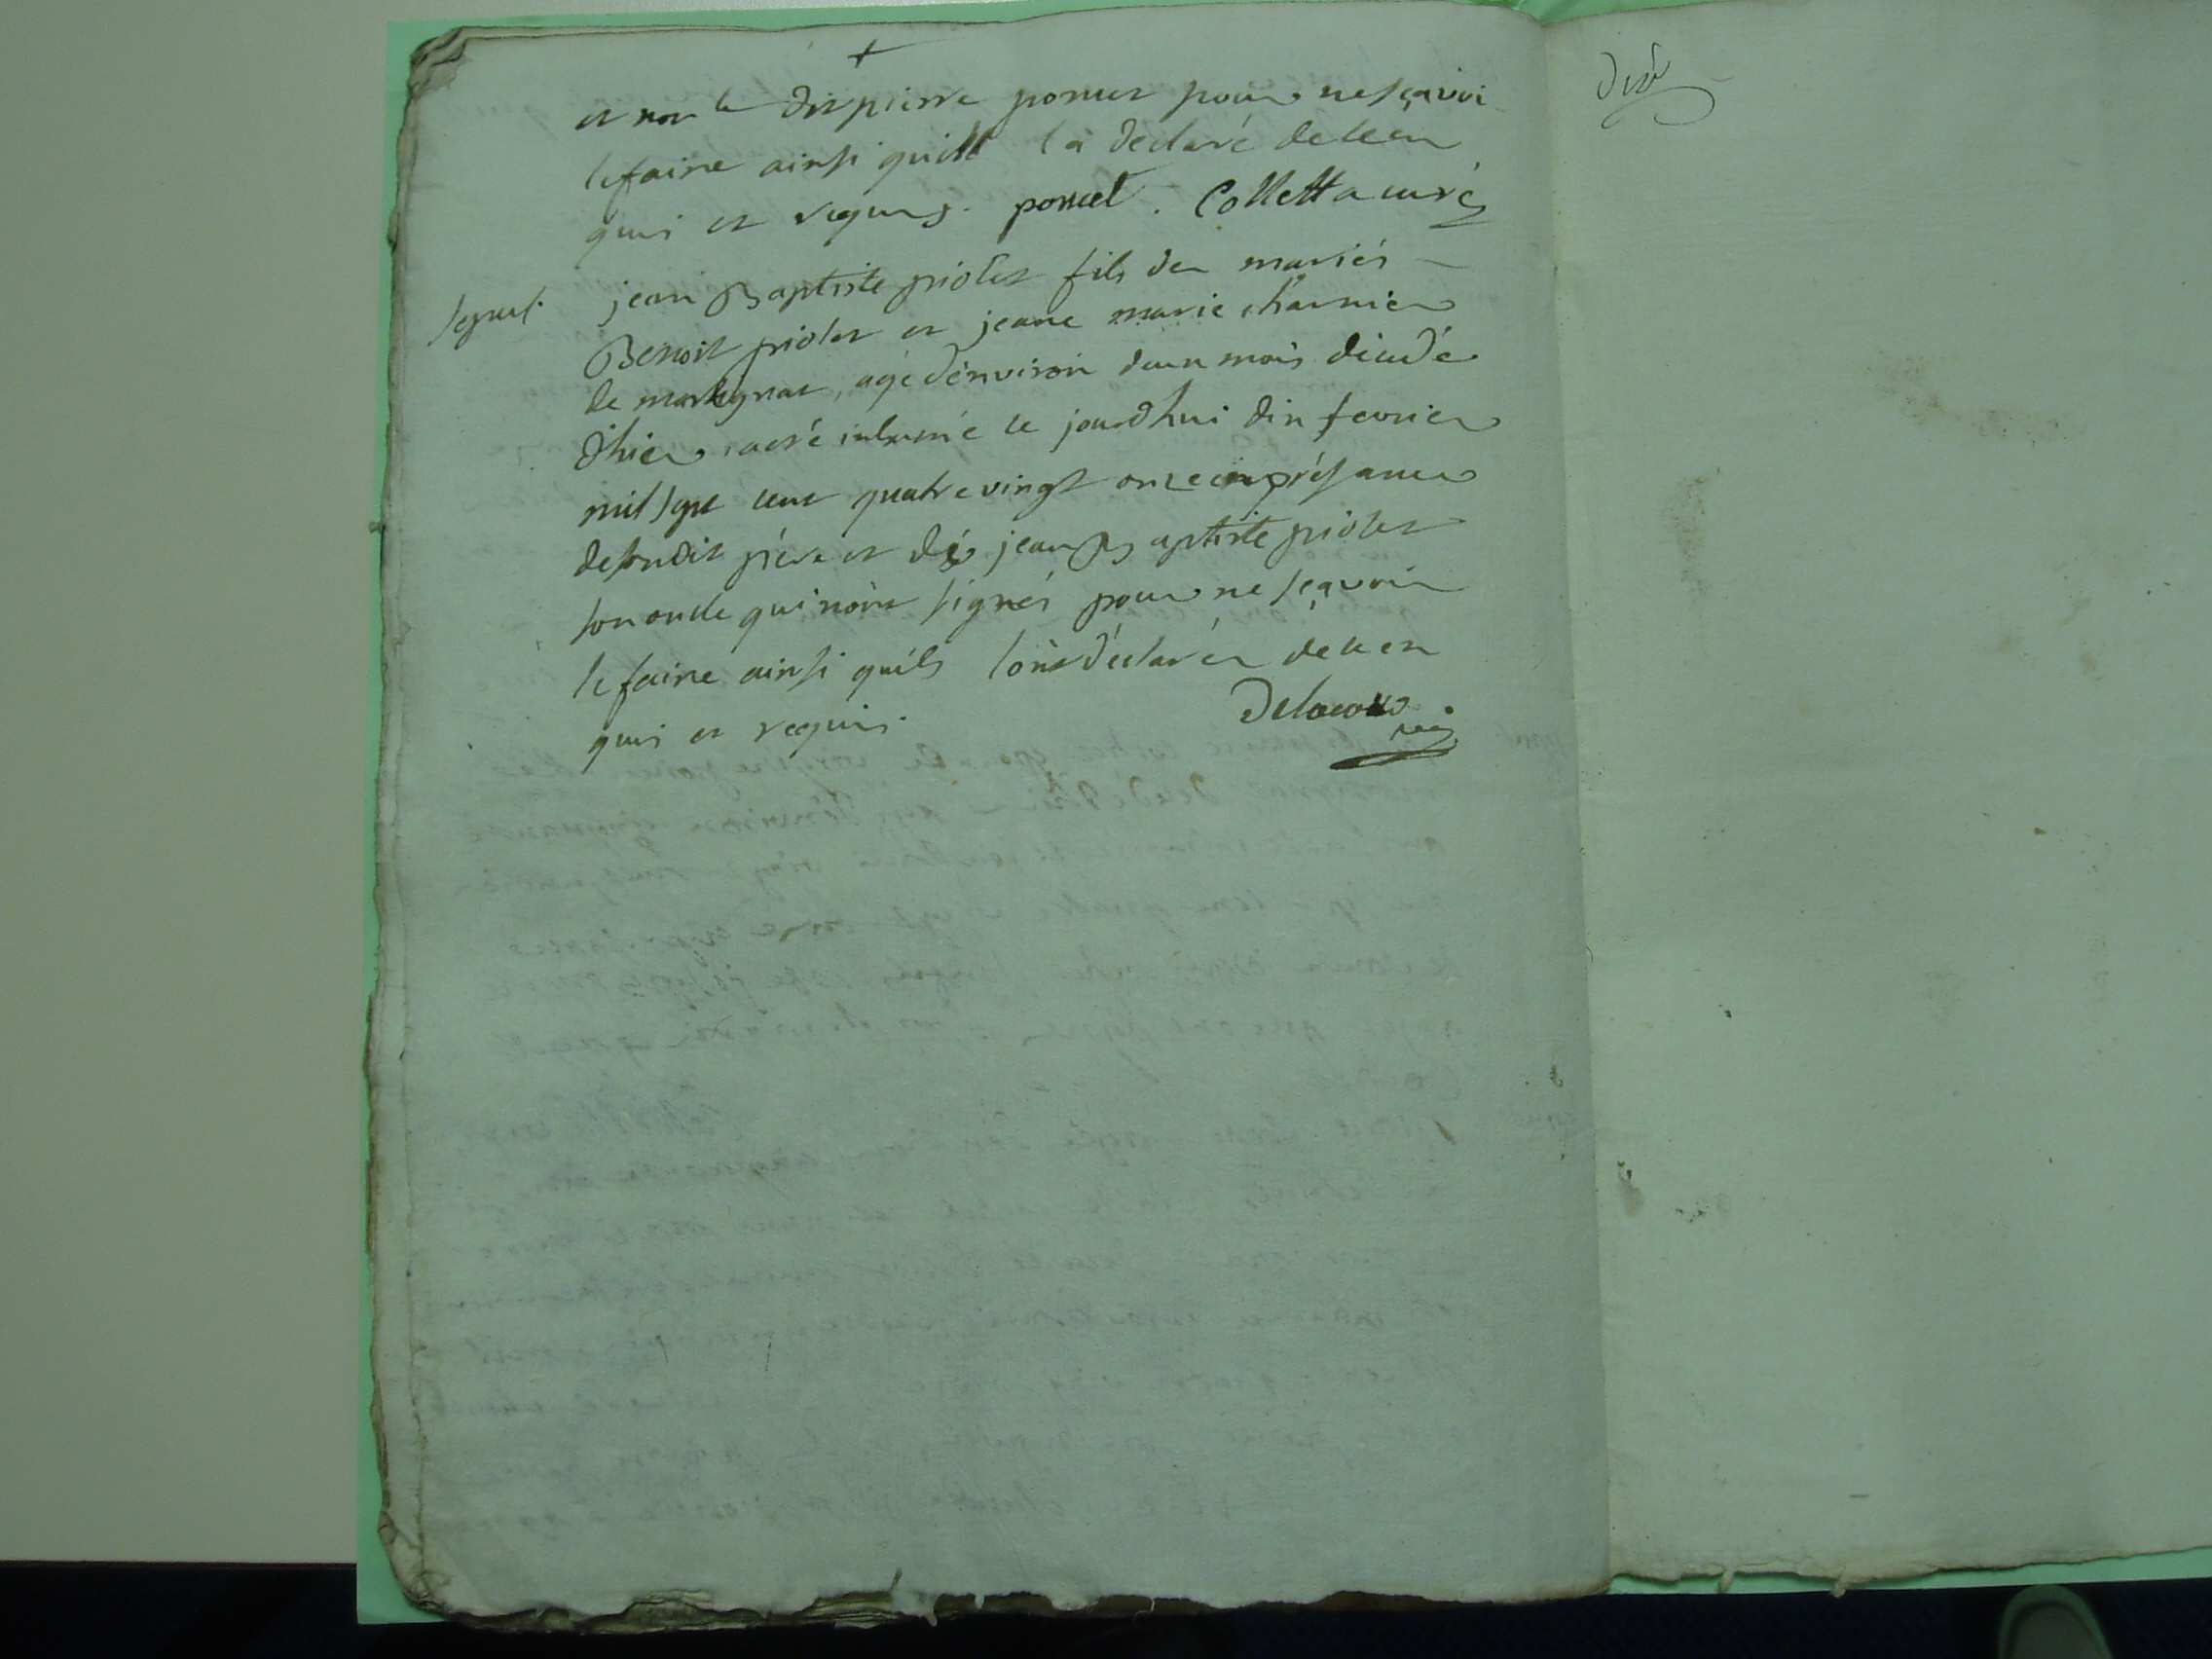 et non le dit pierre poncet pour ne sçavoir
le faire ainsi quill la declaré de ce en
quis et requis. poncet. Colletta curé
sepul. jean Baptiste piolet fils des mariés
Benoit piolet et jeane marie charnier
de martignat, agé dénviron dun mois décedé
dhier, a eté inhumé ce jourdhui dix fevrier
mil sept cent quatre vingt onze en présance
de son dit pére et de jean Baptiste piolet
son oncle qui nont signés pour ne sçavoir
le faire ainsi quils lont déclarés de ce en
quis et requis. Delacoux